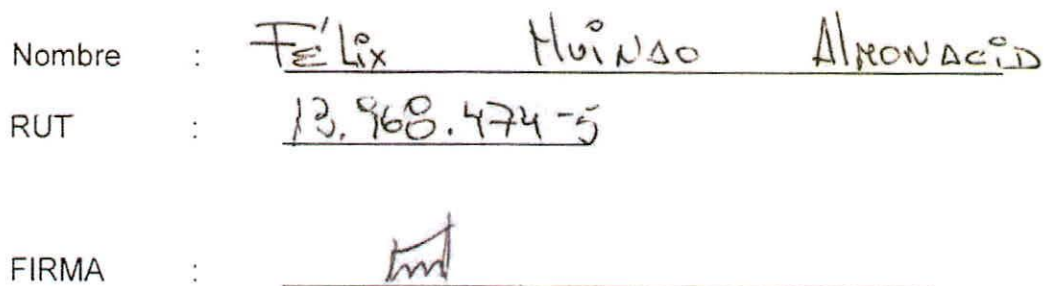 Nombre : Félix Huinao Almonacid
RUT : 13.968.474-5
FIRMA :